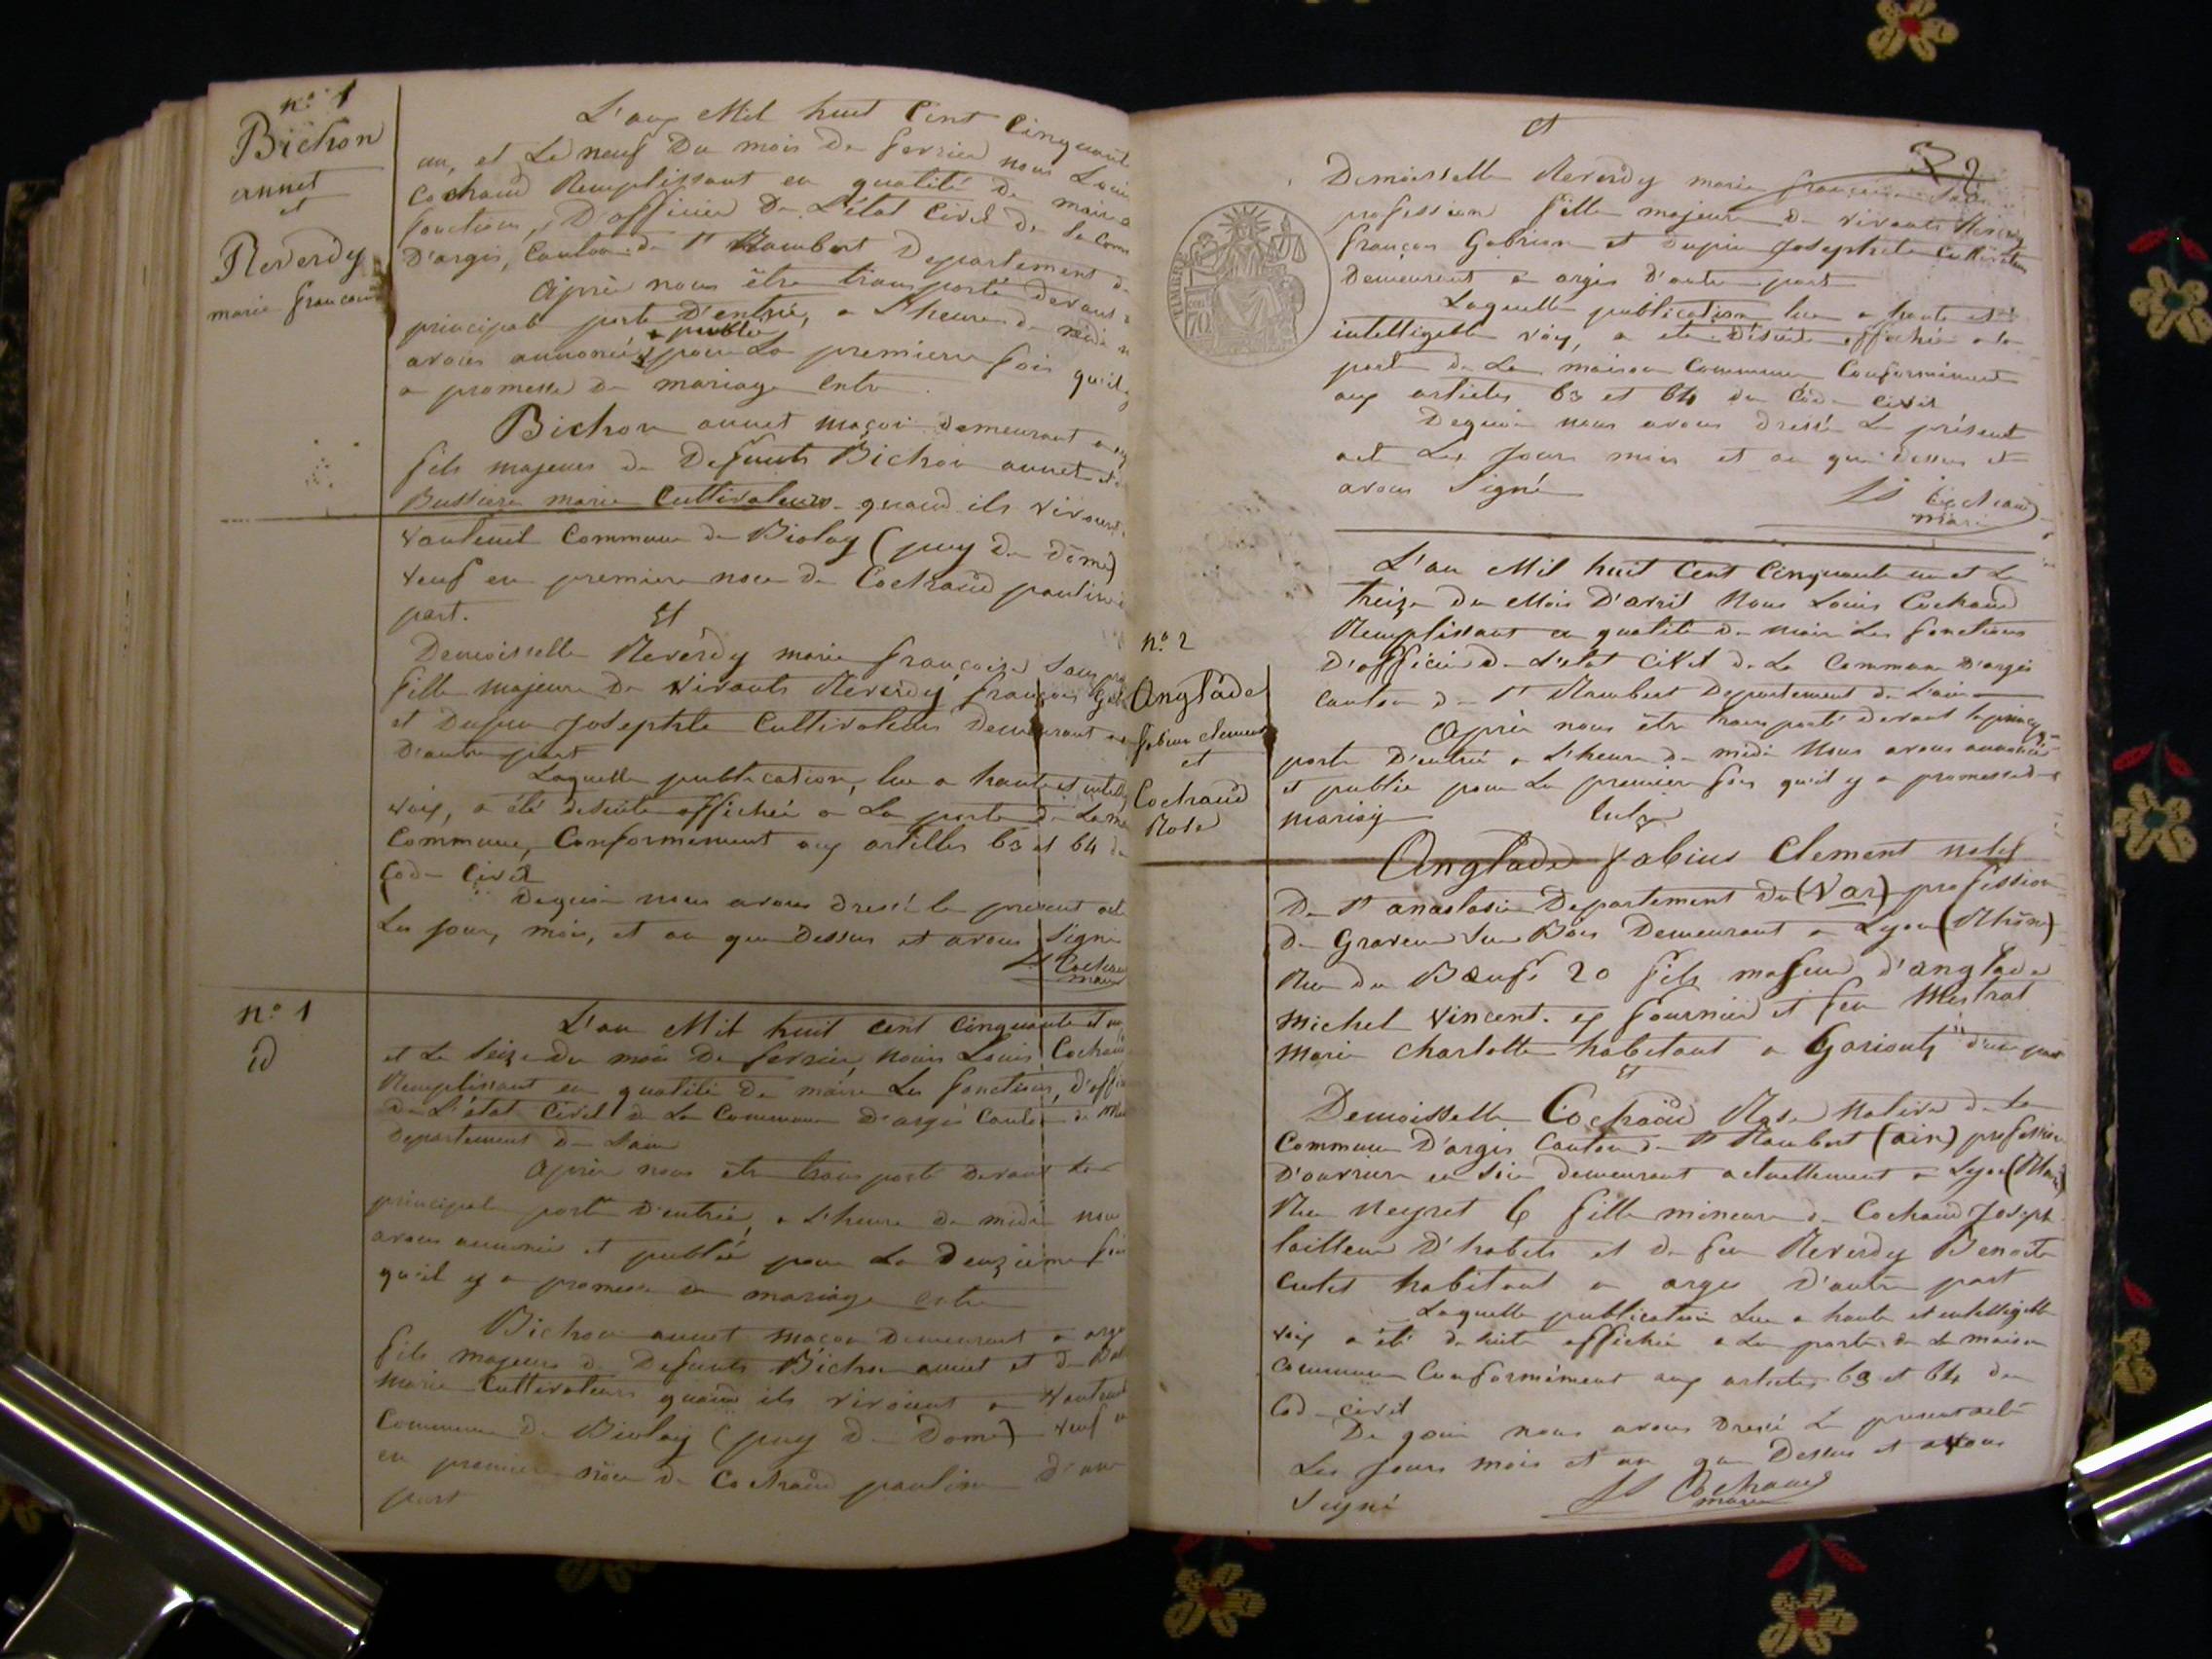 n° 1
Bichon
annet
et
Reverdy
marie francoise
L'an Mil huit Cent Cinquante
un, et Le neuf Du mois De fevrier nous Louis
Cochaud Remplissant en qualité De maire
fonctions, D'officier De L'état Civil De la Com
D'argis, Canton De St Rambert Departement D
Après nous être transporté devant
principale porte D'entrée, a L'heure De midi n
avons annoncé & publié pour La premiere fois qu'il y
a promesse De mariage Entre
Bichon annet maçon demeurant a
fils majeur De Defunts Bichon annet et
Bussiere marie Cultivateurs quand ils vivoient
Vauteuil Commune De Biolay (puy De Dôme)
Veuf en premiere noce De Cochaud pauline
part.
Et
Demoiselle Reverdy marie françoise
fille majeure De Vivants Reverdy françois
et Dupin Josephte Cultivateurs Demeurant
D'autre part
Laquelle publication, lue a haute et intel
voix, a été desuite affichée a La porte De La m
Commune, Conformement aux artilles 63 et 64 d
Code Civil
Dequoi nous avons dressé le present acte
Les jour, mois, et an que Dessus et avons Signé
L Cochaud
maire
n° 1
id
L'an Mil huit cent cinquante et un
et Le Seize du mois De fevrier, nous Louis Cochaud
Remplissant en qualité De maire Les fonctions, d'offi
De L'état Civil de La Commune D'argis Canton de
Departement De L'ain
Après nous être transporté devant La
principale porte D'entrée, a L'heure De midi nous
avons annoncé et publié pour La Deuxième fois
qu'il y a promesse De mariage Entre
Bichon annet maçon Demeurant a argis
fils majeur De Defunts Bichon annet et De
Marie Cultivateurs quand ils vivoient a Vauteuil
Commune De Biolay (puy De Dome) veuf
en premiere noce De Cochaud pauline D'une
part
Et
2
Demoiselle Reverdy marie françoise
profession fille majeure De vivants
françois Gabriel et Dupin Josephte Cultivateurs
Demeurant a argis D'autre part
Laquelle publication lue a haute et
intelligible voix, a été Desuite affichée a la
porte De La maison Commune Conformement
aux articles 63 et 64 du Code Civil
Dequoi nous avons dressé Le présent
act Les Jour mois et an que dessus et
avons Signé
L Cochaud
maire
TIMBRE
70
n° 2
Anglade
fabius clement
et
Cochaud
Rose
L'an Mil huit Cent Cinquante un et Le
treize du Mois D'avril Nous Louis Cochaud
Remplissant en qualité De maire Les fonctions
D'officier De L'état Civil De La Commune D'argis
Canton De St Rambert Departement De L'ain
Après nous être transporté devant la principale
porte D'entrée a L'heure De midi Nous avons annoncé
et publié pour La premiere fois qu'il y a promesse de
mariage Entre
Anglade fabius Clement natif
De St anastasie Departement Du (Var) profession
De Graveur Sur Bois Demeurant a Lyon (Rhône)
Rue du Bœufs 20 fils majeur d'anglade
Michel Vincent. ex fournier et feu Mistral
Marie Charlotte habitant a Garioult d'une part
Et
Demoisselle Cochaud Rose Native de la
Commune D'argis Canton De St Rambert (ain) profession
D'ouvriere en Soie demeurant actuellement a Lyon (Rhône)
Rue Neyret 6 fille mineure De Cochaud Joseph
tailleur D'habits et De feu Reverdy Benoite
Cultes habitant a argis D'autre part
Laquelle publication Lue a haute et intelligible
voix a été de suite affichée a La porte De La maison
Commune Conformément aux articles 63 et 64 du
Cod civil
De quoi nous avons dressé Le present acte
Les Jours mois et an que Dessus et avons
Signé
L Cochaud
maire